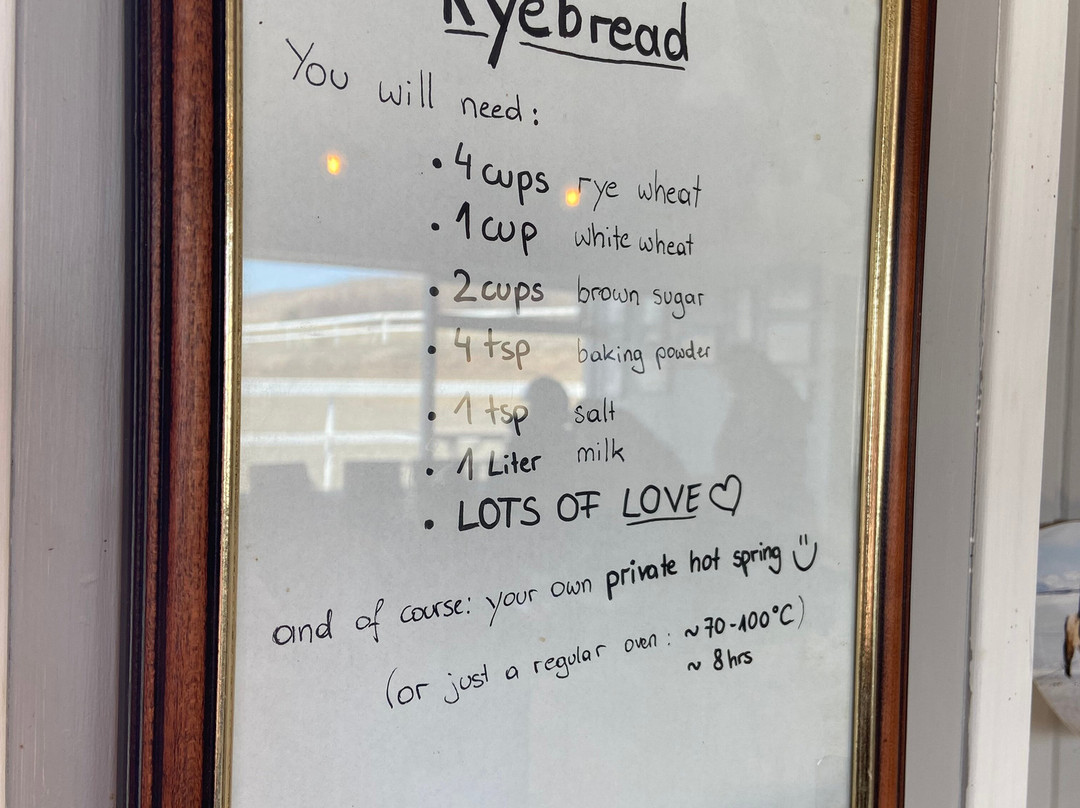 Ryebread
You will need:
• 4 cups rye wheat
• 1 cup white wheat
• 2 cups brown sugar
• 4 tsp baking powder
• 1 tsp salt
• 1 Liter milk
• LOTS OF LOVE ♡
and of course: your own private hot spring Ü
(or just a regular oven: ~70-100°C)
~ 8 hrs